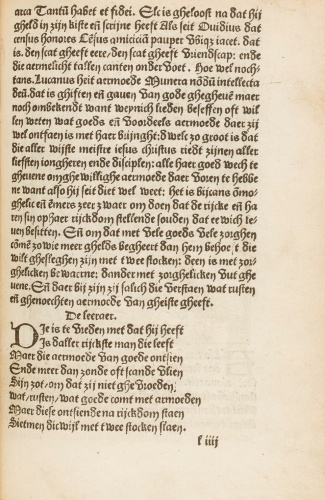 arca Tantū habet et fidei. Elc is gheloost na dat hij
gheld in zijn kiste en̄ scrijne heeft Als seit Ouidius dat
census honores Cēsus amicicias pauper vbiqȝ iacet. dat
is. den scat gheeft eere, den scat gheeft vriendscap: ende
die aermelicht tallen canten onder voet. Hoe wel noch-
tans. Lucanus heit aermoede Munera nōdū intellecta
deū. dat is ghiften en̄ gauen van gode ghegheuē maer
noch ombekendt want weynich lieden beseffen oft wil
len weten wat goeds en̄ voordeels aermoede daer zij
wel ontfaen is met haer brijnght; dwelc zo groot is dat
die aller wijste meistre iesus christus riedt zijnen aller
liefsten iongheren ende disciplen: alle haer goed wech te
gheuene om ghewillighe aermoede daer voren te hebbe
ne want also hij seit diet wel weet: het is bijcans ōmo-
ghelic en̄ ēmers zeer zwaer om doen dat de rijcke en̄ ha
ren sin op haer rijckdom stellende souden dat eewich le-
uen besitten. En̄ om dat met vele goeds vele zorghen
comē zo wie meer gheelds begheert dan hem behoeft die
wilt ghesleghen zijn met twee stocken: deen is met zor-
ghelicken bewaerne: dander met zorghelicken vut ghe
uene. En̄ daer bij zijn zij salich die verstaen wat rusten
en̄ ghenoechten aermoede van gheiste gheeft.
De leeraer.
Die is te vreden met dat hij heeft
Is daller rijckste man die leeft
Maer die aermoede van goede ontsien
Ende meer dan zonde oft scande vlien
Sijn zot, om dat zij niet ghevroeden,
wat rusten, wat goede comt met aermoeden
Maer diese ontsiende na rijckdom staen
Sietmen dicwijl met twee stocken slaen.
l iiij